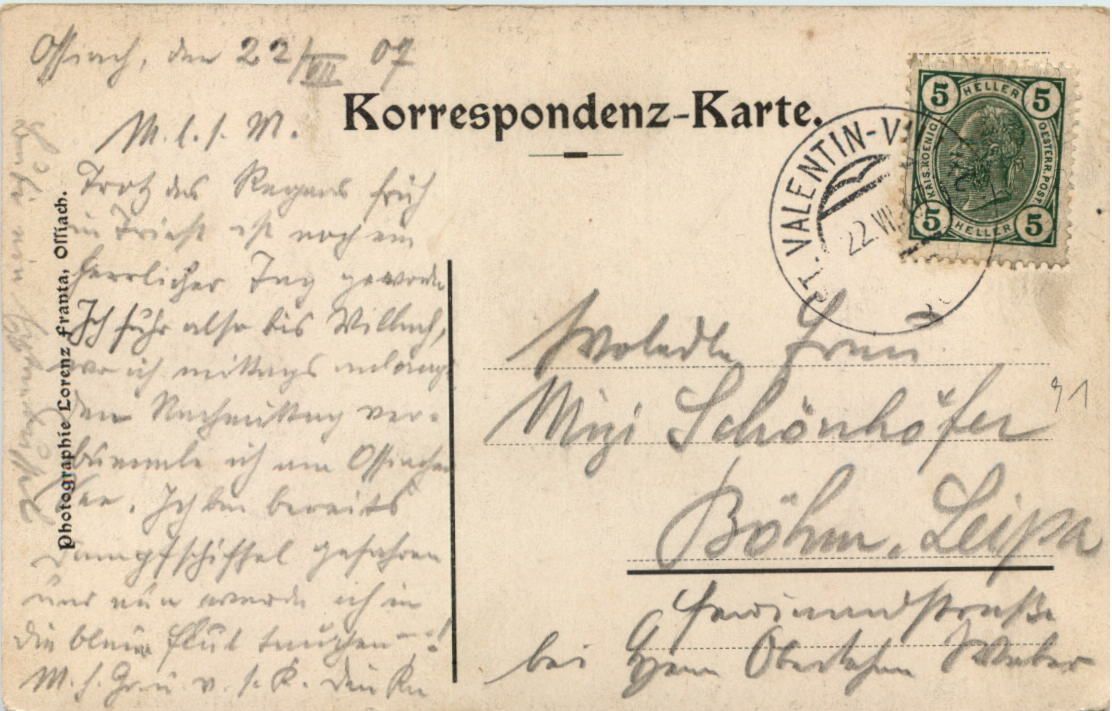 Ossiach, den 22/VII 07
Korrespondenz-Karte.
M. l. s. M.
Trotz des Regens früh
in Triest ist noch ein
herrlicher Tag geworden
Ich fuhr also bis Villach,
wo ich mittags anlangte
den Nachmittag ver-
bummle ich am Ossiacher
See. Ich bin bereits
Dampfschiffel gefahren
und nun werde ich in
die blaue Flut tauchen!
M. h. v. s. K. dein
Photographie Lorenz Franta, Ossiach.
5 HELLER 5
KAIS. KOENIG. OESTERR. POST.
5 HELLER 5
ST. VALENTIN-V
22.VII
Frau
Mizi Schönhöfer
Böhm. Leipa
Ferdinandstraße
bei Herrn Weber
91